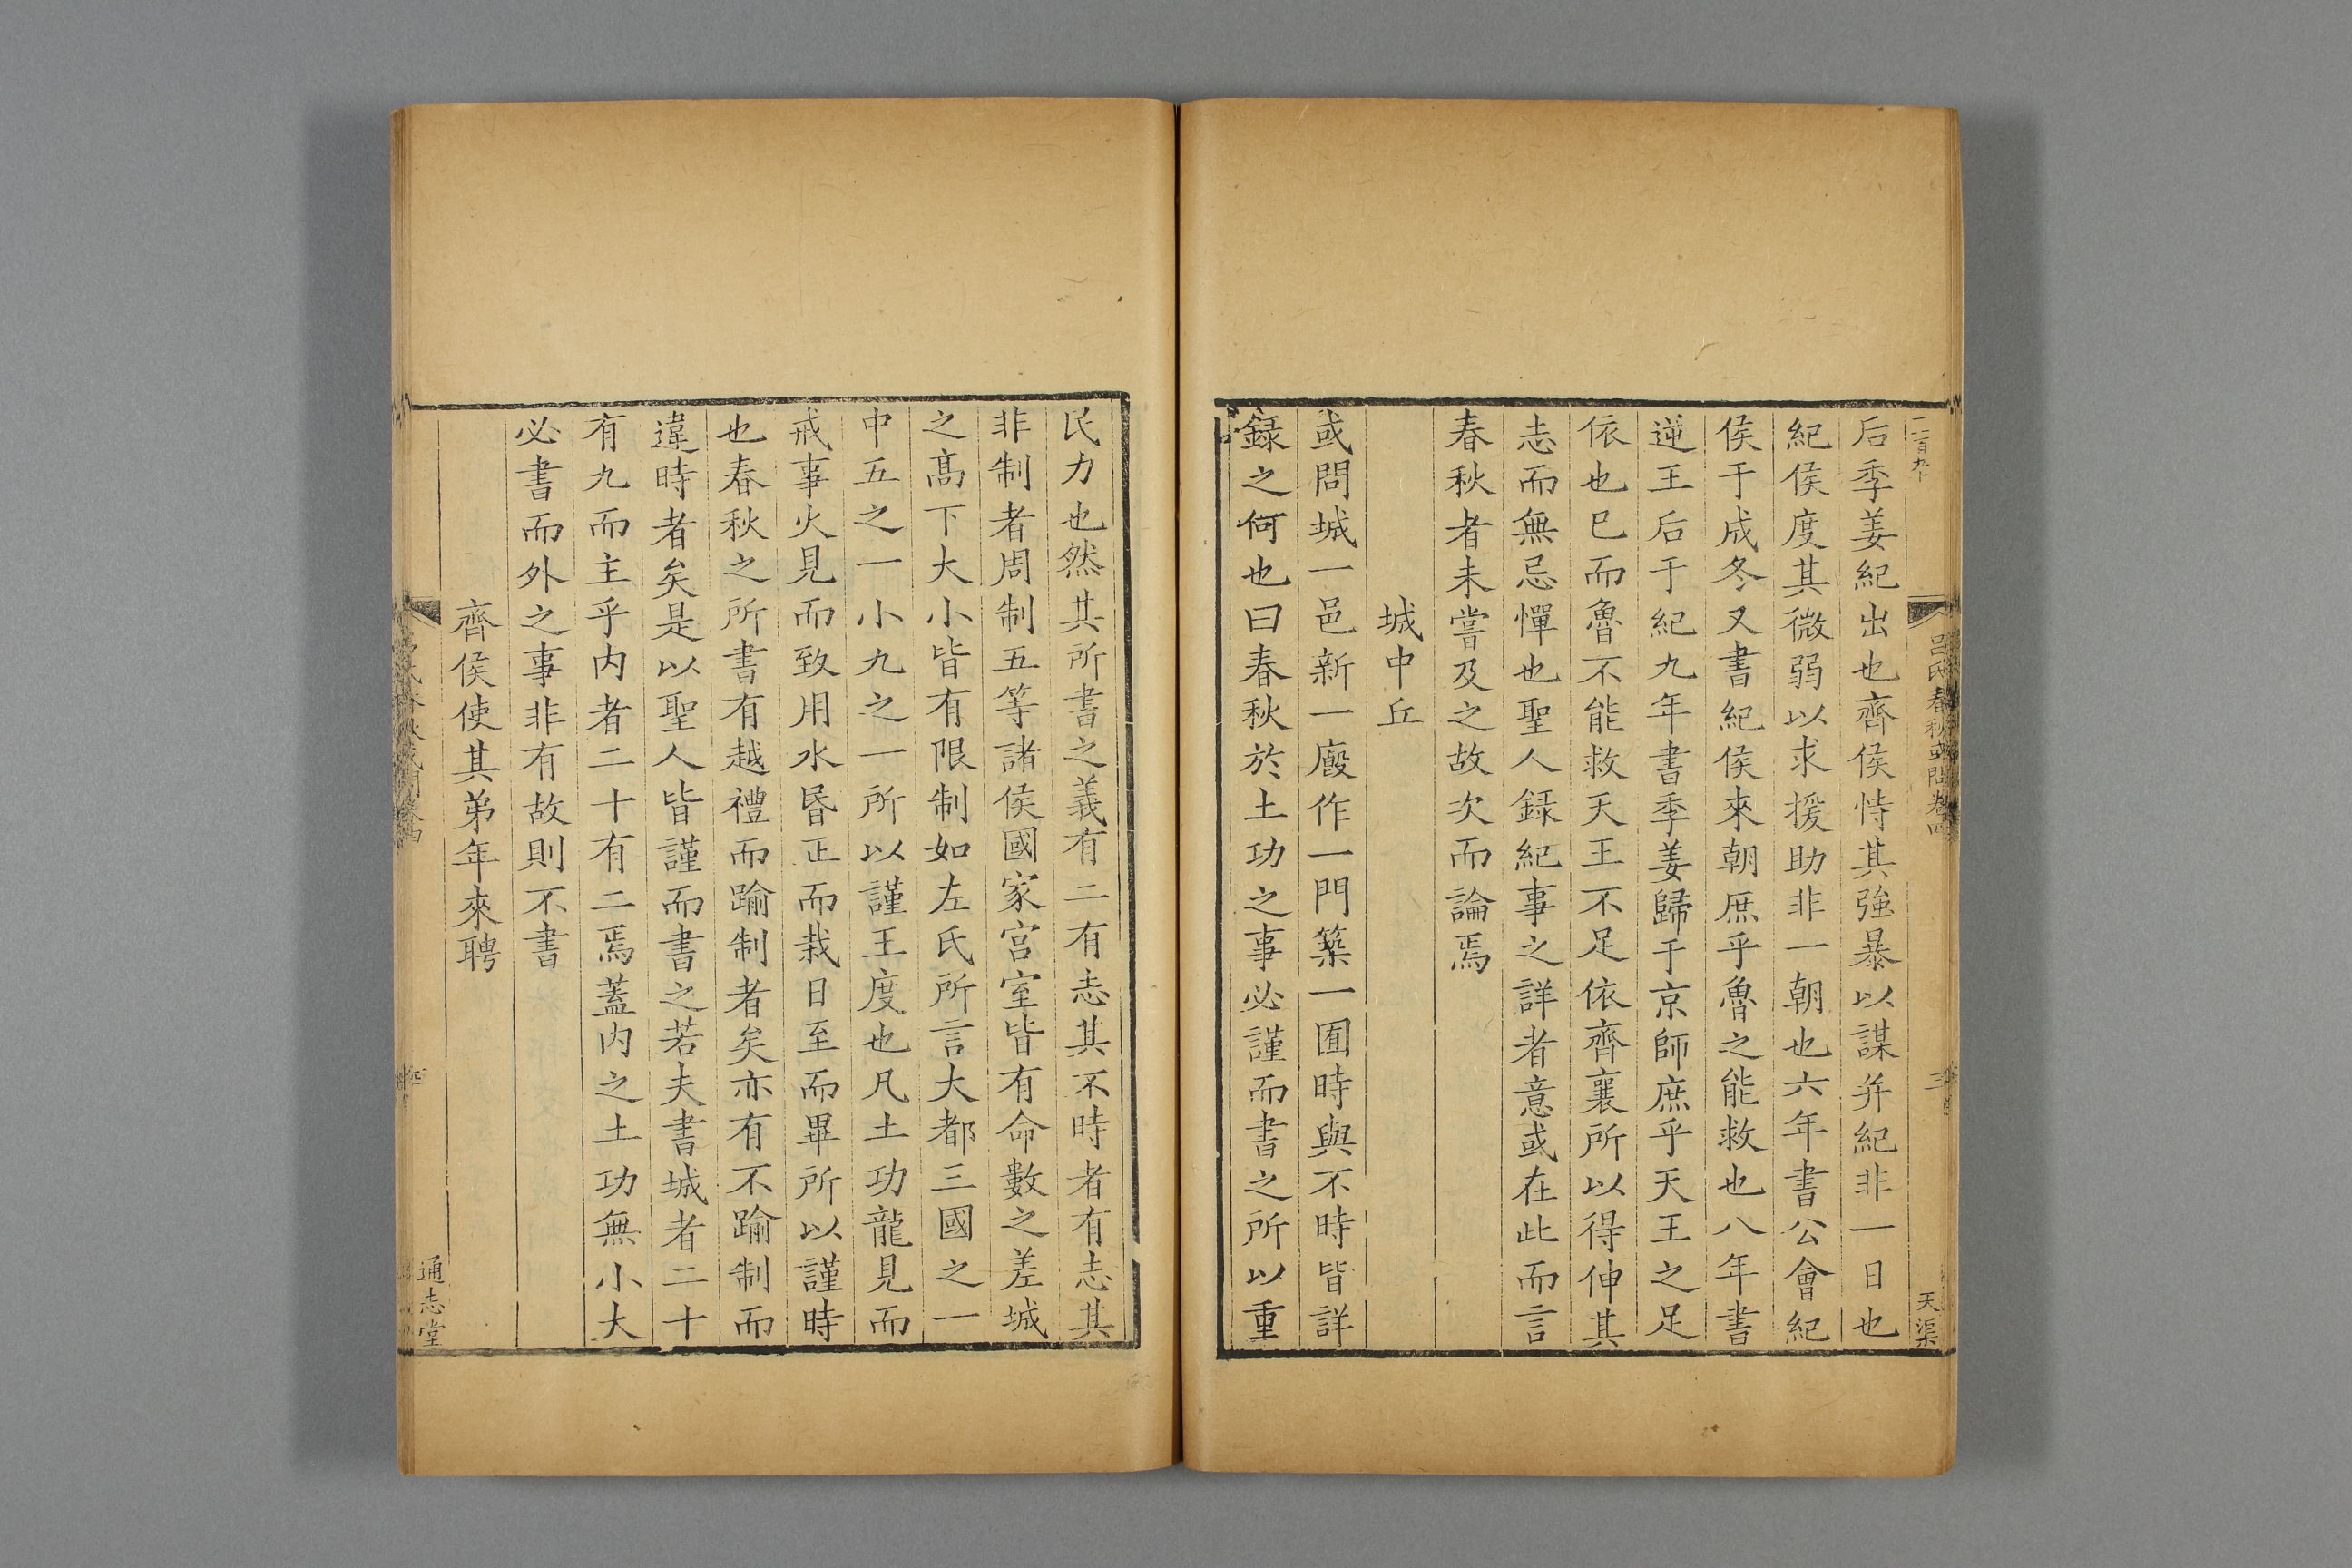 二百九十
呂氏春秋或問卷四
三
天渠
后季姜紀出也齊侯恃其強暴以謀并紀非一日也
紀侯度其微弱以求援助非一朝也六年書公會紀
侯于成冬又書紀侯來朝庶乎魯之能救也八年書
逆王后于紀九年書季姜歸于京師庶乎天王之足
依也巳而魯不能救天王不足依齊襄所以得伸其
志而無忌憚也聖人錄紀事之詳者意或在此而言
春秋者未嘗及之故次而論焉
城中丘
或問城一邑新一廄作一門築一囿時與不時皆詳
錄之何也曰春秋於土功之事必謹而書之所以重
民力也然其所書之義有二有志其不時者有志其
非制者周制五等諸侯國家宮室皆有命數之差城
之高下大小皆有限制如左氏所言大都三國之一
中五之一小九之一所以謹王度也凡土功龍見而
戒事火見而致用水昬正而栽日至而畢所以謹時
也春秋之所書有越禮而踰制者矣亦有不踰制而
違時者矣是以聖人皆謹而書之若夫書城者二十
有九而主乎內者二十有二焉蓋內之土功無小大
必書而外之事非有故則不書
齊侯使其弟年來聘
通志堂